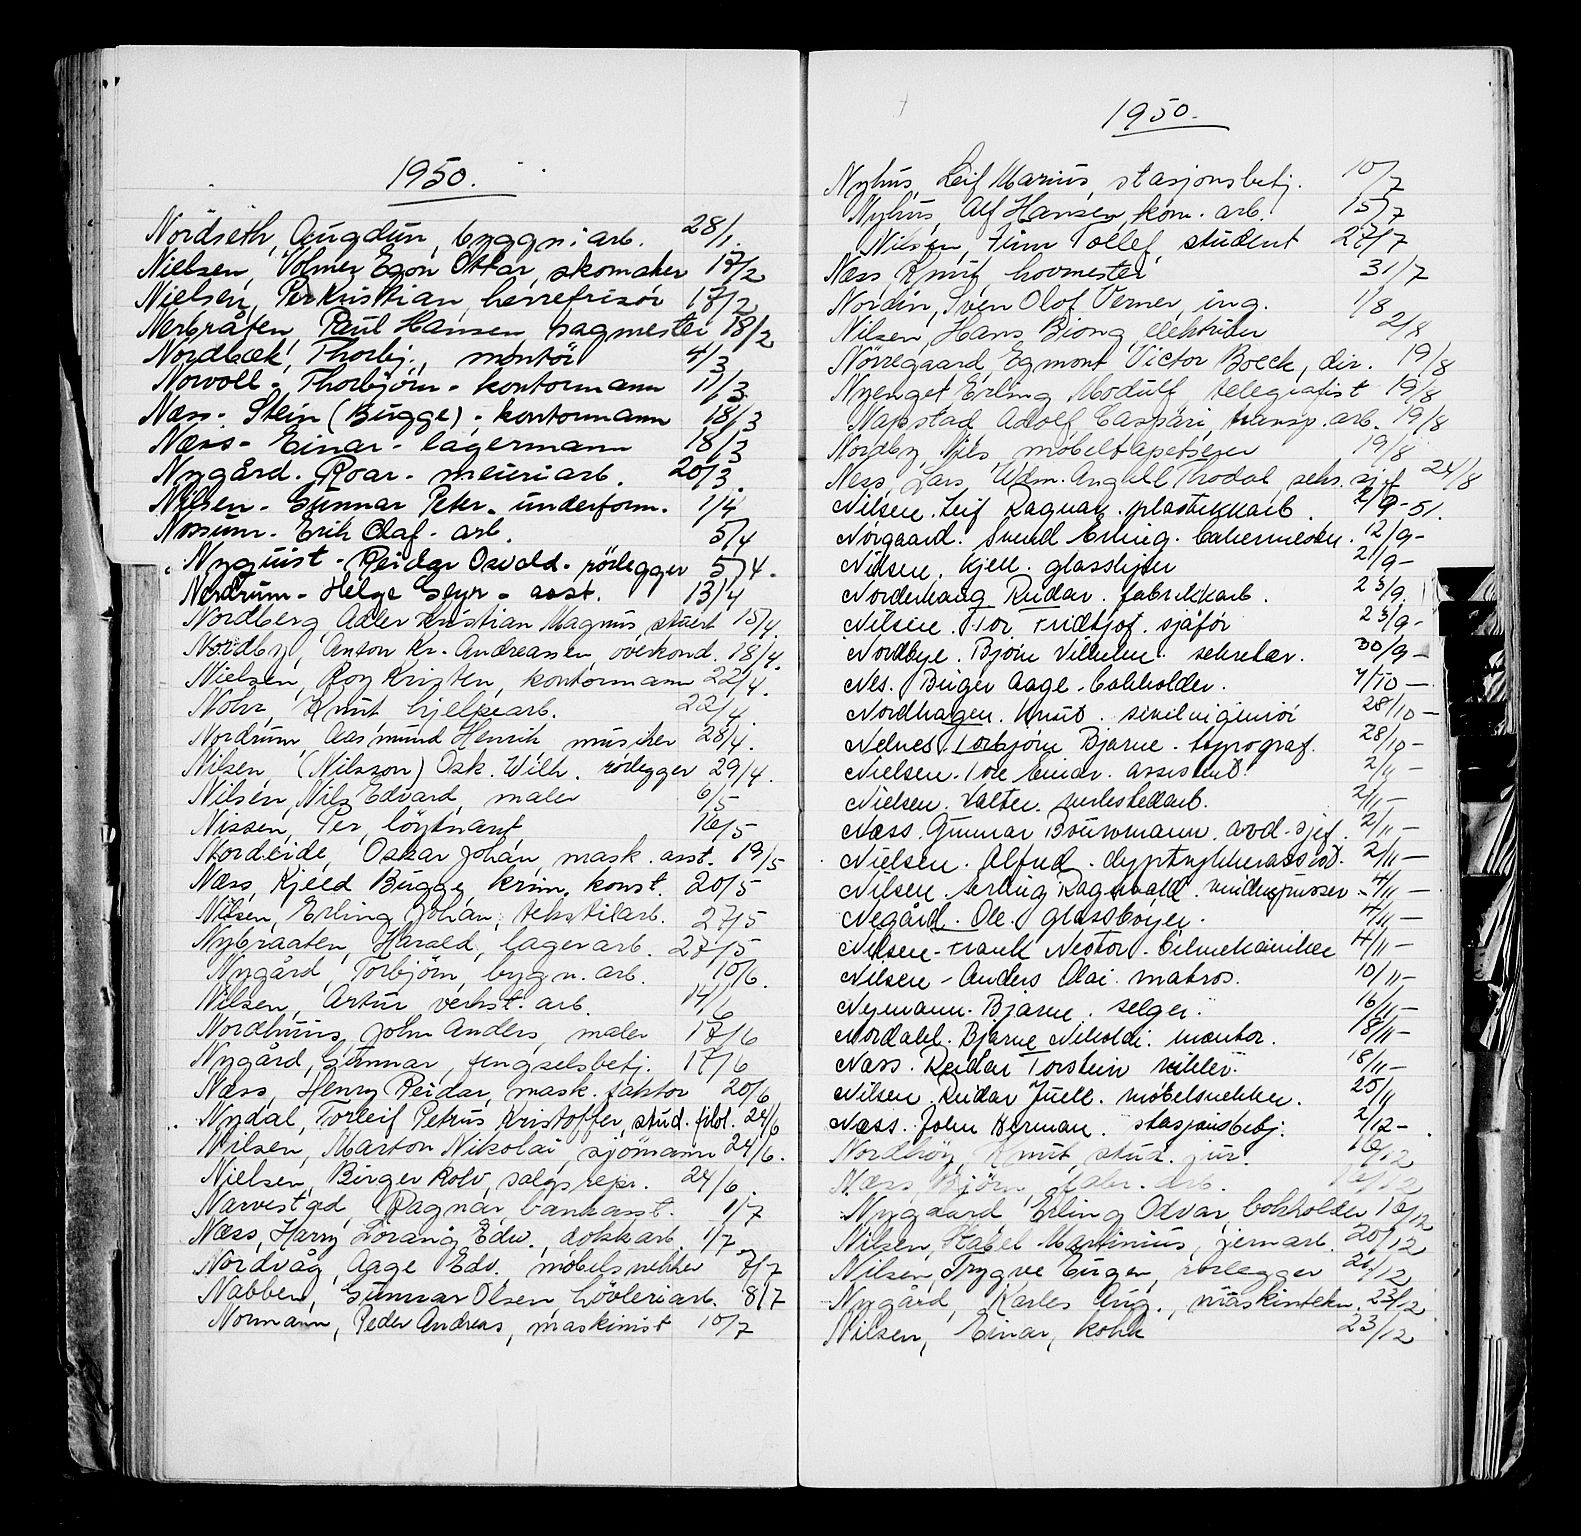 1950.
Nordseth, Augdun, byggn. arb. 28/1.
Nielsen, Volmer Egon Ottar, skomaker 17/2
Nielsen, Per Kristian, herrefrisör 18/2
Nerbråten, Paul Hansen, sagmester 18/2
Nordbæk, Thorbj., montör 4/3
Norvoll - Thorbjörn - kontormann 11/3
Næss - Stein (Bugge) - kontormann 18/3
Næss - Einar - lagermann 18/3
Nygård - Roar - meieriarb. 20/3.
Nilsen - Gunnar Peter - underform. 1/4
Nossum - Erik Olaf - arb. 5/4
Nyquist - Reidar Osvald - rörlegger 5/4.
Nordrum - Helge Geyr - asst. 13/4
Nordberg, Adler Kristian Magnus, 15/4.
Nordby, Anton Kr. Andreassen, overkond. 18/4.
Nielsen, Roy Kristen, kontormann 22/4.
Nohr, Knut, hjelpearb. 22/4.
Nordrum, Aasmund Henrik, musiker 28/4.
Nilsen, (Nilsson) Osk. Wilh. rörlegger 29/4.
Nilsen, Nils Edvard, maler 6/5
Nissen, Per, löytnant 16/5
Nordeide, Oskar Johan, mask. asst. 19/5
Næss, Kjeld Bugge, krim. konst. 20/5
Nilsen, Erling Johan, tekstilarb. 27/5
Nybraaten, Harald, lagerarb. 27/5
Nygård, Torbjörn, bygn. arb. 10/6.
Nilsen, Artur, verkst. arb. 14/6
Nordhuus, John Anders, maler 17/6
Nygård, Gunnar, fengselsbetj. 17/6
Næss, Henry Reidar, mask. faktor 20/6
Nydal, Torleif Petrus Kristoffer, stud. filol. 24/6
Nilsen, Marton Nikolai, sjömann 24/6.
Nielsen, Birger Rolv, salgsrepr. 24/6.
Narvestad, Ragnar, bankasst. 1/7
Næss, Harry Lorang Edv., dokkarb. 1/7
Nordvåg, Aage Edv. möbelsnekker 7/7
Nabben, Gunnar Olsen, hövleriarb. 8/7
Normann, Peder Andreas, maskinist 10/7
1950.
Nyhus, Leif Marius, stasjonsbetj. 10/7
Nyhus, Alf Hansen, kom. arb. 15/7
Nilsen, Finn Tollef, student 27/7
Næss, Knut, hovmester 31/7
Nordin, Sven Olof Verner, ing. 1/8
Nilsen, Hans Biong, elektriker 2/8
Nörregaard, Egmont Victor Boeck, dir. 19/8
Nyenget, Erling Modulf, telegrafist 19/8
Napstad, Adolf Caspari, transp. arb. 19/8
Nordby, Nils, möbeltapetserer 19/8
Ness, Lars, Trodal, seks. sjef 24/8
Nilsen, Leif Ragnar. plastikkarb. 2/9-51.
Nörgaard. Svend Erling. bakermester. 12/9-
Nilsen. Kjell. glassliper 21/9-
Norderhaug Reidar. fabrikkarb. 23/9.
Nilsen. Tor Fridtjof. sjåför 23/9-
Nordbye. Bjørn Vilhelm. sekretær. 30/9-
Nes. Birger Aage. bokholder. 7/10-
Nordhagen. Knut. sivilingeniör 28/10-
Nelnes. Torbjörn Bjarne. typograf. 28/10-
Nielsen. Tore Einar. assistent. 2/11-
Nielsen. Valter. verkstedarb. 2/11-
Næss. Gunnar Brunvmann. avd. sjef. 2/11-
Nielsen. Alfred. dyptrykkerassist. 2/11-
Nilsen. Erling Ragnvald. vinduspusser. 4/11-
Negård. Ole. glassbøyer. 4/11-
Nilsen. Frank Nestor. bilmekaniker 4/11-
Nilsen - Anders Olai. matros. 10/11-
Nymann. Bjarne. selger. 16/11-
Nordahl. Bjarne Nikolai. montør. 18/11-
Næss. Reidar Torstein. 18/11-
Nilsen. Reidar Juell. möbelsnekker. 25/11
Næss. John Herman. stasjonsbetj. 2/12-.
Nordböy, Knut, stud. jur. 16/12
Næss, Björn, fabr. arb. 16/12
Nygaard, Erling Odvar, bokholder 16/12
Nilsen, Kabel Martinius, jernarb. 20/12
Nilsen, Trygve Eugen, rörlegger 21/12
Nygård, Karles Aug., maskintekn. 23/12
Nilsen, Einar, kokk 23/12